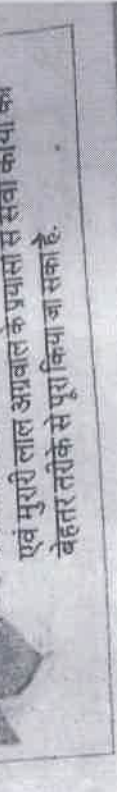 एवं मुरारी लाल अग्रवाल के प्रयासों से सेवा कार्यों को
बेहतर तरीके से पूरा किया जा सका है.